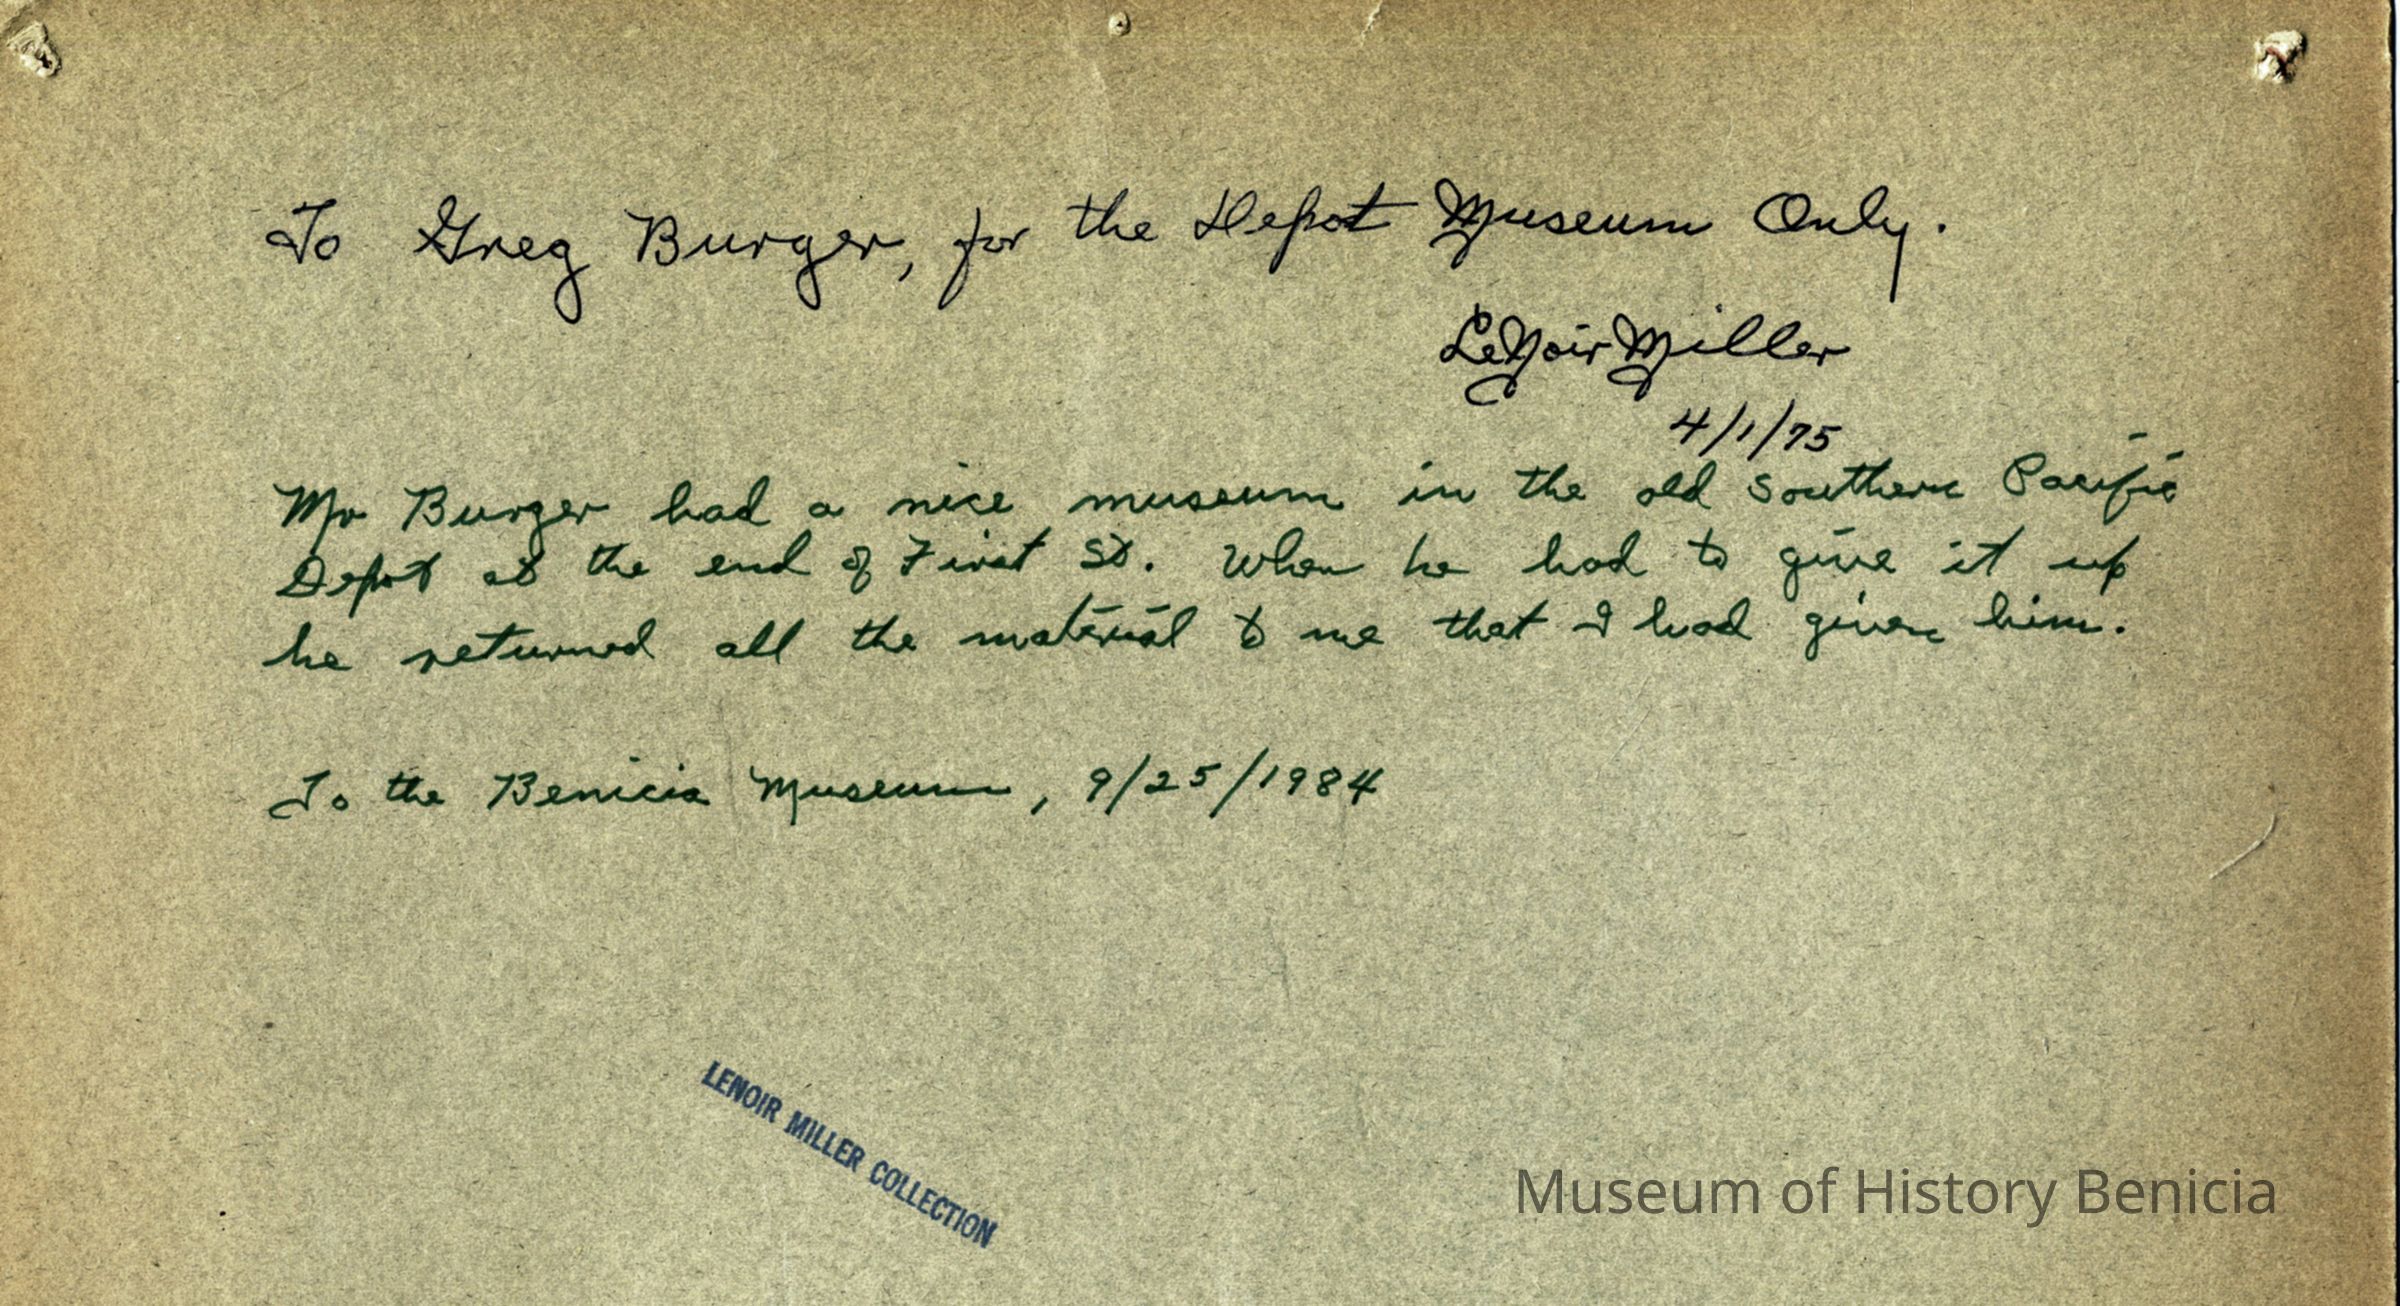 To Greg Burger, for the Depot Museum Only.
LeNoir Miller
4/1/75
Mr Burger had a nice museum in the old Southern Pacific
Depot at the end of First St. When he had to give it up
he returned all the material to me that I had given him.
To the Benicia Museum, 9/25/1984
LENOIR MILLER COLLECTION
Museum of History Benicia